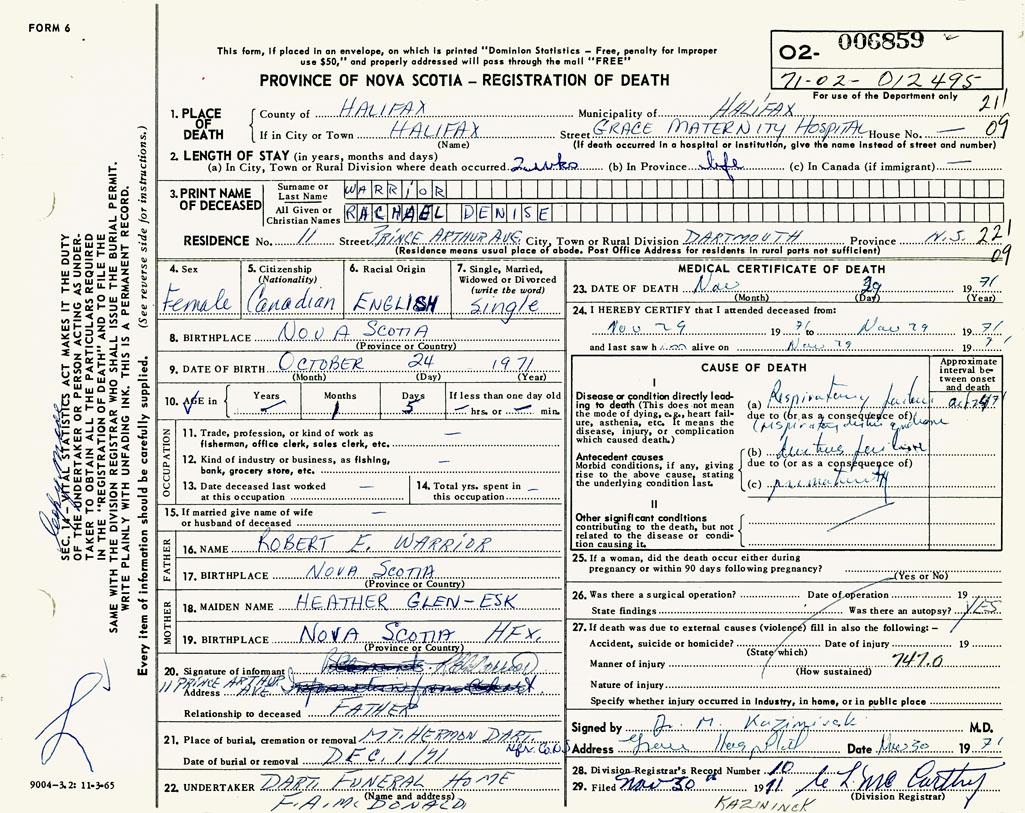 FORM 6
This form, if placed in an envelope, on which is printed "Dominion Statistics - Free, penalty for improper
use $50," and properly addressed will pass through the mail "FREE"
PROVINCE OF NOVA SCOTIA – REGISTRATION OF DEATH
O2- 006859
71-02-012495
For use of the Department only
211
09
1. PLACE OF DEATH
County of HALIFAX Municipality of HALIFAX
If in City or Town HALIFAX Street GRACE MATERNITY HOSPITAL House No. —
(Name) (If death occurred in a hospital or institution, give the name instead of street and number)
2. LENGTH OF STAY (in years, months and days)
(a) In City, Town or Rural Division where death occurred 2 wks (b) In Province life (c) In Canada (if immigrant) —
3. PRINT NAME OF DECEASED
Surname or Last Name WARRIOR
All Given or Christian Names RACHAEL DENISE
RESIDENCE No. 11 Street PRINCE ARTHUR AVE. City, Town or Rural Division DARTMOUTH Province N.S. 221
09
(Residence means usual place of abode. Post Office Address for residents in rural parts not sufficient)
4. Sex Female
5. Citizenship (Nationality) Canadian
6. Racial Origin ENGLISH
7. Single, Married, Widowed or Divorced (write the word) Single
8. BIRTHPLACE NOVA SCOTIA
(Province or Country)
9. DATE OF BIRTH OCTOBER 24 1971
(Month) (Day) (Year)
10. AGE in Years — Months 1 Days 5 If less than one day old
— hrs. or — min.
OCCUPATION
11. Trade, profession, or kind of work as —
fisherman, office clerk, sales clerk, etc.
12. Kind of industry or business, as fishing, —
bank, grocery store, etc.
13. Date deceased last worked at this occupation —
14. Total yrs. spent in this occupation —
15. If married give name of wife —
or husband of deceased
FATHER
16. NAME ROBERT E. WARRIOR
17. BIRTHPLACE NOVA SCOTIA
(Province or Country)
MOTHER
18. MAIDEN NAME HEATHER GLEN-ESK
19. BIRTHPLACE NOVA SCOTIA HFX.
(Province or Country)
20. Signature of informant
Address 11 PRINCE ARTHUR AVE
Relationship to deceased FATHER
21. Place of burial, cremation or removal MT. HERMON DART.
Hfx. Co. N.S
Date of burial or removal DEC. 1/71
22. UNDERTAKER DART. FUNERAL HOME
(Name and address)
F.A. MCDONALD
MEDICAL CERTIFICATE OF DEATH
23. DATE OF DEATH Nov 29 1971
(Month) (Day) (Year)
24. I HEREBY CERTIFY that I attended deceased from:
Nov 29 1971 to Nov 29 1971
and last saw h alive on Nov 29 197
CAUSE OF DEATH
Approximate interval between onset and death
I
Disease or condition directly leading to death (This does not mean the mode of dying, e.g., heart failure, asthenia, etc. It means the disease, injury, or complication which caused death.)
(a) Respiratory failure
due to (or as a consequence of)
respiratory distress syndrome
Antecedent causes
Morbid conditions, if any, giving rise to the above cause, stating the underlying condition last.
(b) ductus
due to (or as a consequence of)
(c) prematurity
II
Other significant conditions contributing to the death, but not related to the disease or condition causing it.
25. If a woman, did the death occur either during
pregnancy or within 90 days following pregnancy?
(Yes or No)
26. Was there a surgical operation? Date of operation 19
State findings Was there an autopsy? YES
27. If death was due to external causes (violence) fill in also the following: –
Accident, suicide or homicide? Date of injury 19
(State which)
Manner of injury 747.0
(How sustained)
Nature of injury
Specify whether injury occurred in industry, in home, or in public place
Signed by Dr. M. M.D.
Address Grace Hospital Date Nov 30 1971
28. Division Registrar's Record Number 10
29. Filed Nov 30th 1971 C L McCarthy
(Division Registrar)
KAZININCK
SEC. 14 – VITAL STATISTICS ACT MAKES IT THE DUTY
OF THE UNDERTAKER OR PERSON ACTING AS UNDER-
TAKER TO OBTAIN ALL THE PARTICULARS REQUIRED
IN THE "REGISTRATION OF DEATH" AND TO FILE THE
SAME WITH THE DIVISION REGISTRAR WHO SHALL ISSUE THE BURIAL PERMIT.
WRITE PLAINLY WITH UNFADING INK. THIS IS A PERMANENT RECORD.
Every item of information should be carefully supplied. (See reverse side for instructions.)
9004–3.2: 11-3-65